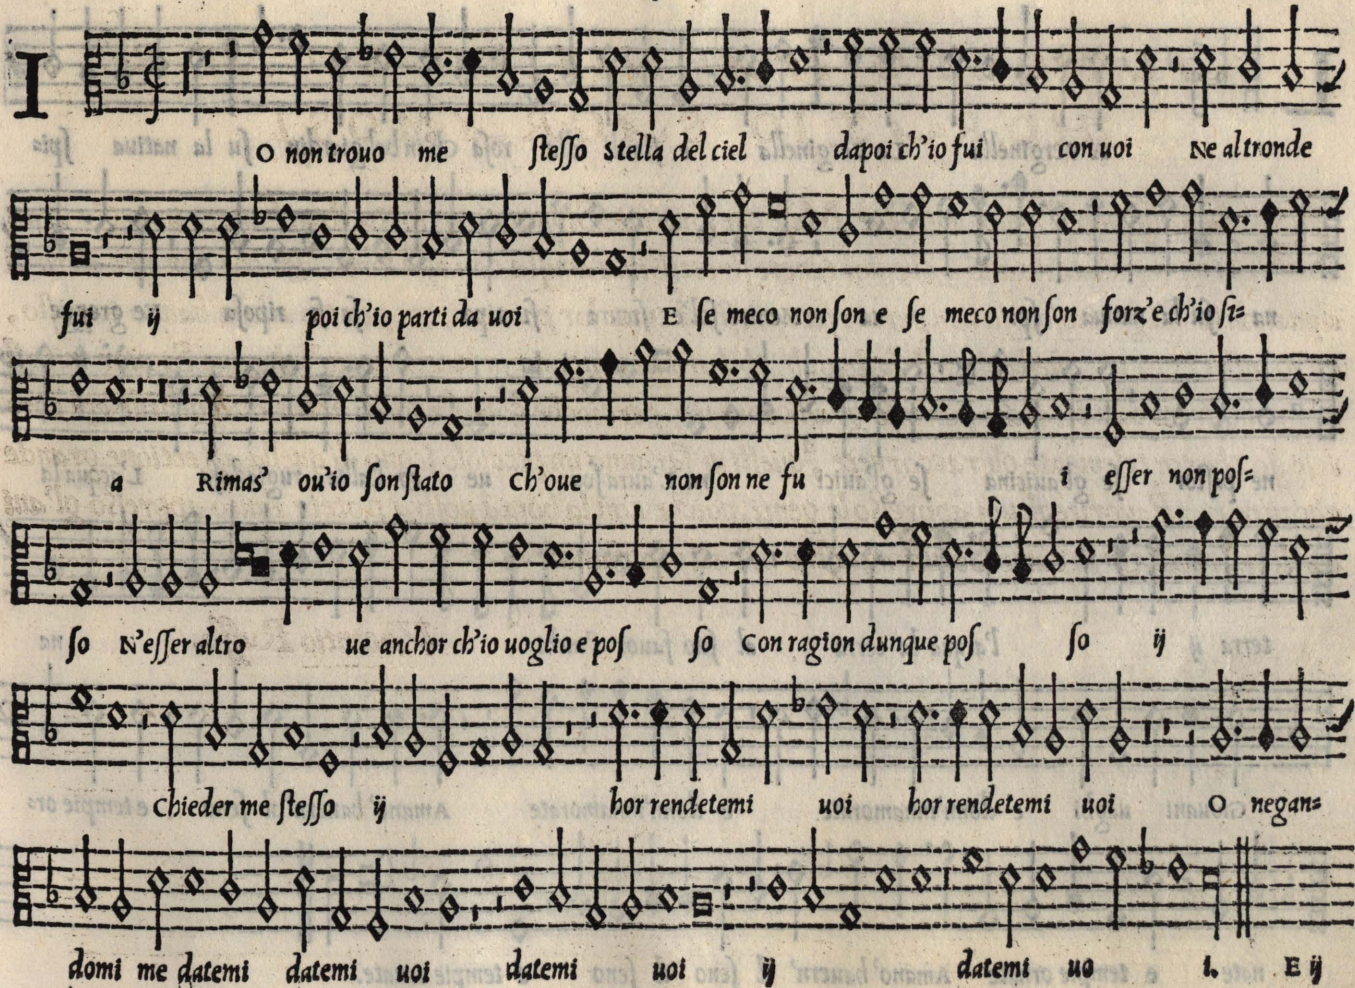 I
O non trouo me ſteſſo Stella del ciel dapoi ch'io fui con uoi Ne altronde
fui ij poi ch'io parti da uoi E ſe meco non ſon e ſe meco non ſon forz'e ch'io ſi=
a Rimas' ou'io ſon ſtato Ch'oue non ſon ne fu i eſſer non poſ=
ſo N'eſſer altro ue anchor ch'io uoglio e poſ ſo Con ragion dunque poſ ſo ij
Chieder me ſteſſo ij hor rendetemi uoi hor rendetemi uoi O negan=
domi me datemi datemi uoi datemi uoi ij datemi uo i. E ij